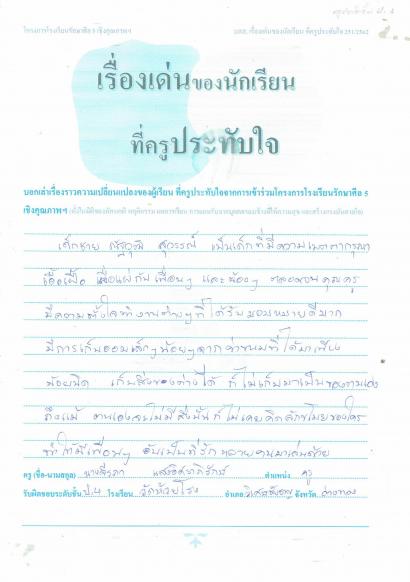 โครงการโรงเรียนรักษาศีล ๕ เชิงคุณภาพฯ
เรื่องเด่นของนักเรียน ที่ครูประทับใจ 251/2562
เรื่องเด่นของนักเรียน
ที่ครูประทับใจ
บอกเล่าเรื่องราวความเปลี่ยนแปลงของผู้เรียน ที่ครูประทับใจจากการเข้าร่วมโครงการโรงเรียนรักษาศีล 5
เชิงคุณภาพฯ
เด็กชาย สุวรรณ์ เป็นเด็กที่มีความเมตตากรุณา
เอื้อเฟื้อ เผื่อแผ่กับเพื่อนๆ และน้องๆ ตลอดจนคุณครู
มีความตั้งใจทำงานต่างๆที่ได้รับมอบหมายดีมาก
มีการเก็บออมเล็กๆน้อยๆจากค่าขนมที่ได้มาเพียง
น้อยนิด เก็บสิ่งของต่างได้ ก็ไม่เก็บมาเป็นของตนเอง
ถึงแม้ ตนเองจะไม่มีสิ่งนั้นก็ไม่เคยคิดลักขโมยของใคร
ทำให้มีเพื่อนๆ อันเป็นที่รักหลายคนมาเล่นด้วย
ครู (ชื่อ-นามสกุล) ตำแหน่ง ครู
รับผิดชอบระดับชั้น ป.4 โรงเรียน วัดห้วยโรง อำเภอ วิเศษชัยชาญ จังหวัด อ่างทอง